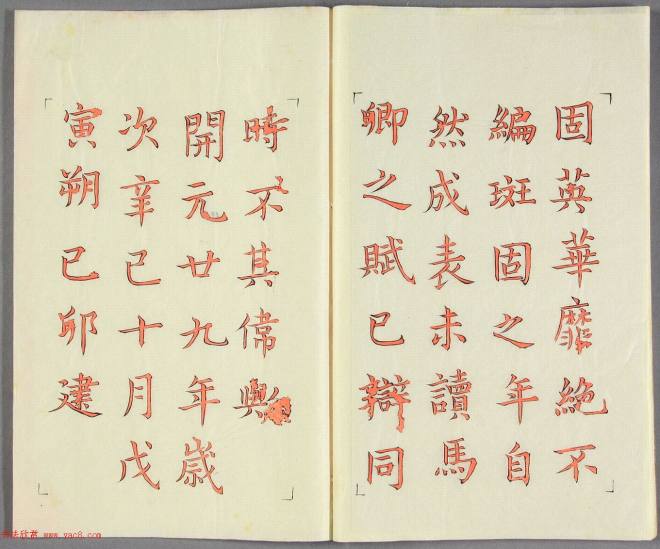 固英華靡絶不
編斑固之年自
然成表未讀馬
卿之賦已辯同
時不其偉歟
開元廿九年歲
次辛巳十月戊
寅朔已卯建
書法欣赏 www.yac8.com